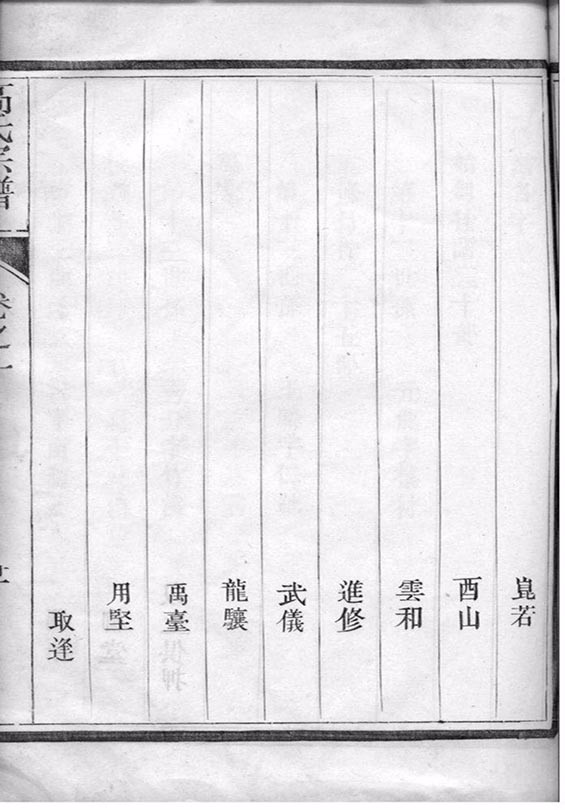 崑若
酉山
雲和
進修
武儀
龍驤
禹臺
用堅
取逢
氏宗譜
卷之一